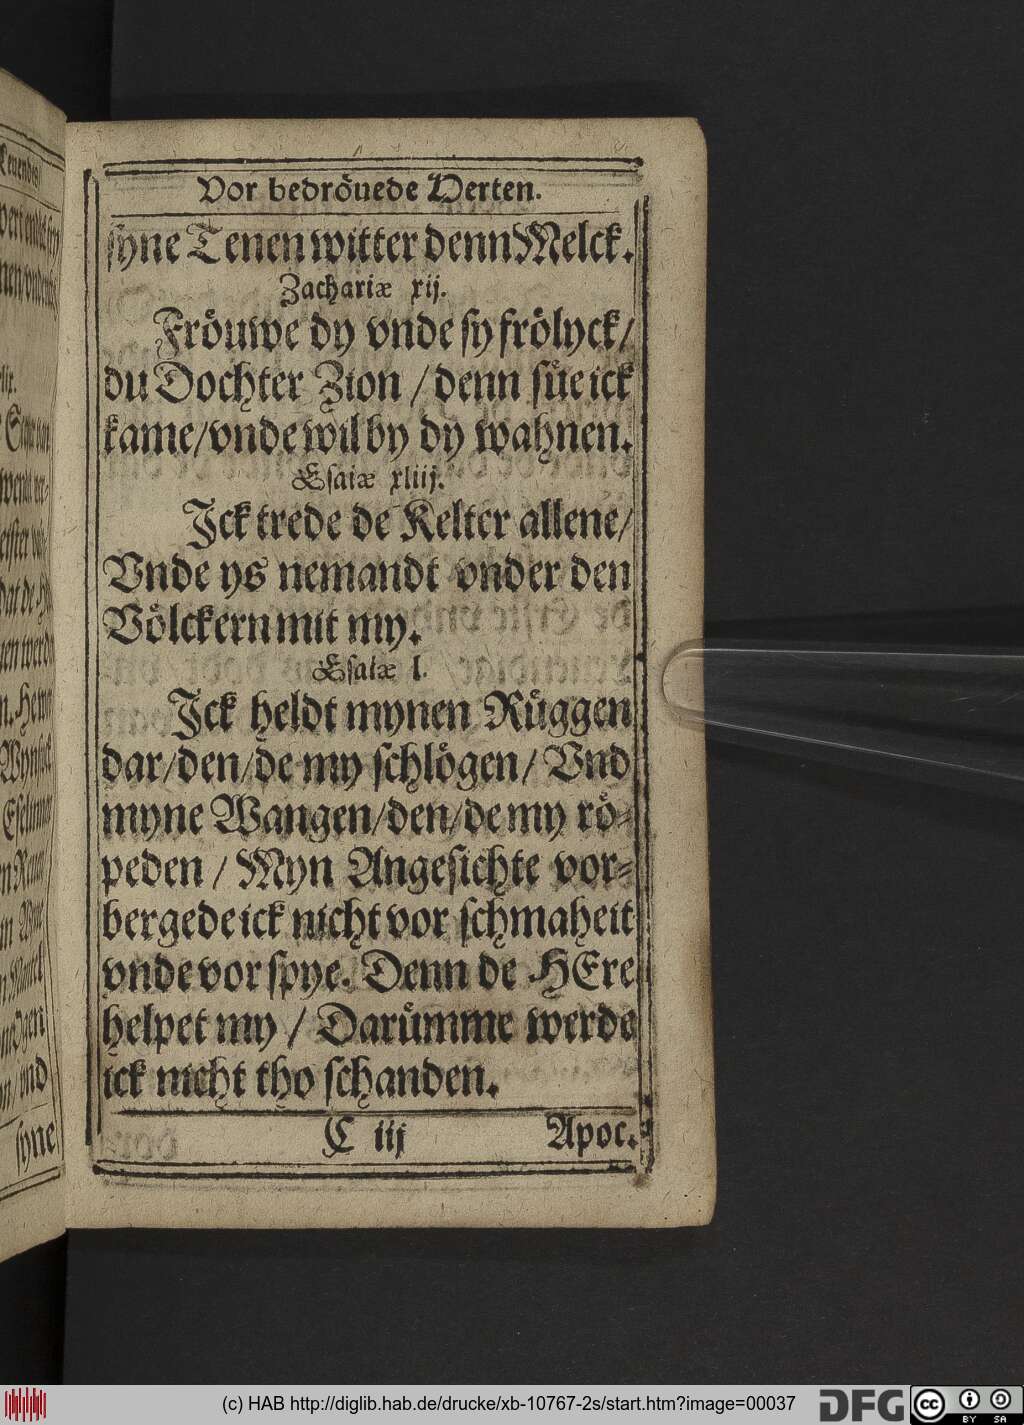 Vor bedröuede Herten.
syne Tenen witter denn Melck.
Zachariæ xij.
Fröuwe dy vnde sy frölyck/
du Dochter Zion / denn süe ick
kame/vnde wil by dy wahnen.
Esaiæ xliij.
Ick trede de Kelter allene/
Vnde ys nemandt vnder den
Völckern mit my.
Esaiæ l.
Ick heldt mynen Rüggen
dar/den/de my schlögen/ Vnd
myne Wangen/den/de my rö-
peden / Myn Angesichte vor-
bergede ick nicht vor schmaheit
vnde vorspye. Denn de HEre
helpet my / Darümme werde
ick nicht tho schanden.
C iij Apoc.
syne
(c) HAB http://diglib.hab.de/drucke/xb-10767-2s/start.htm?image=00037
DFG
cc BY SA